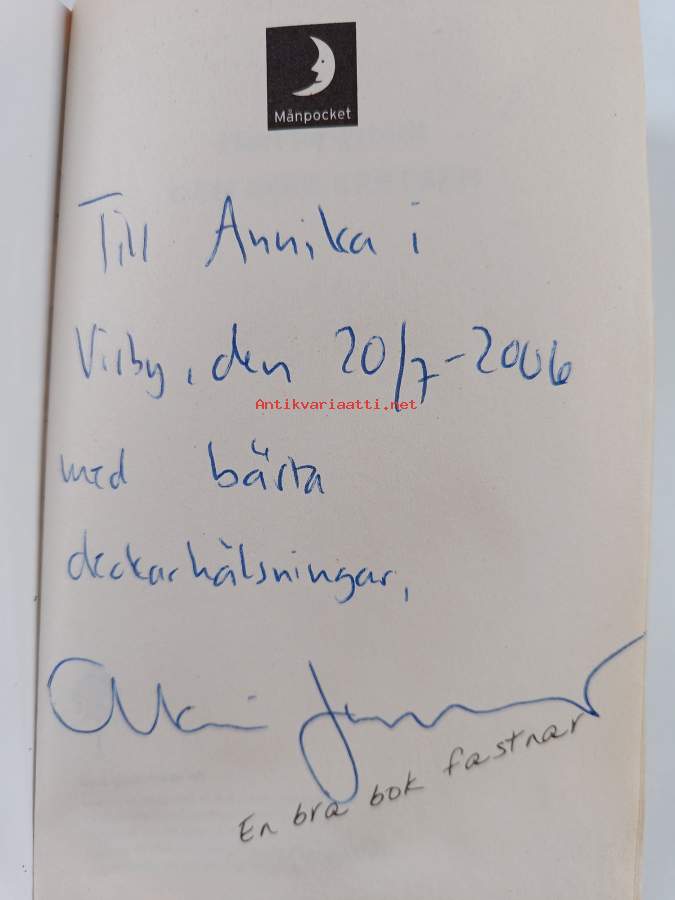 Månpocket
Till Annika i
Visby, den 20/7-2006
Antikvariaatti.net
med bästa
deckarhälsningar,
Mari Jungstedt
En bra bok fastnar